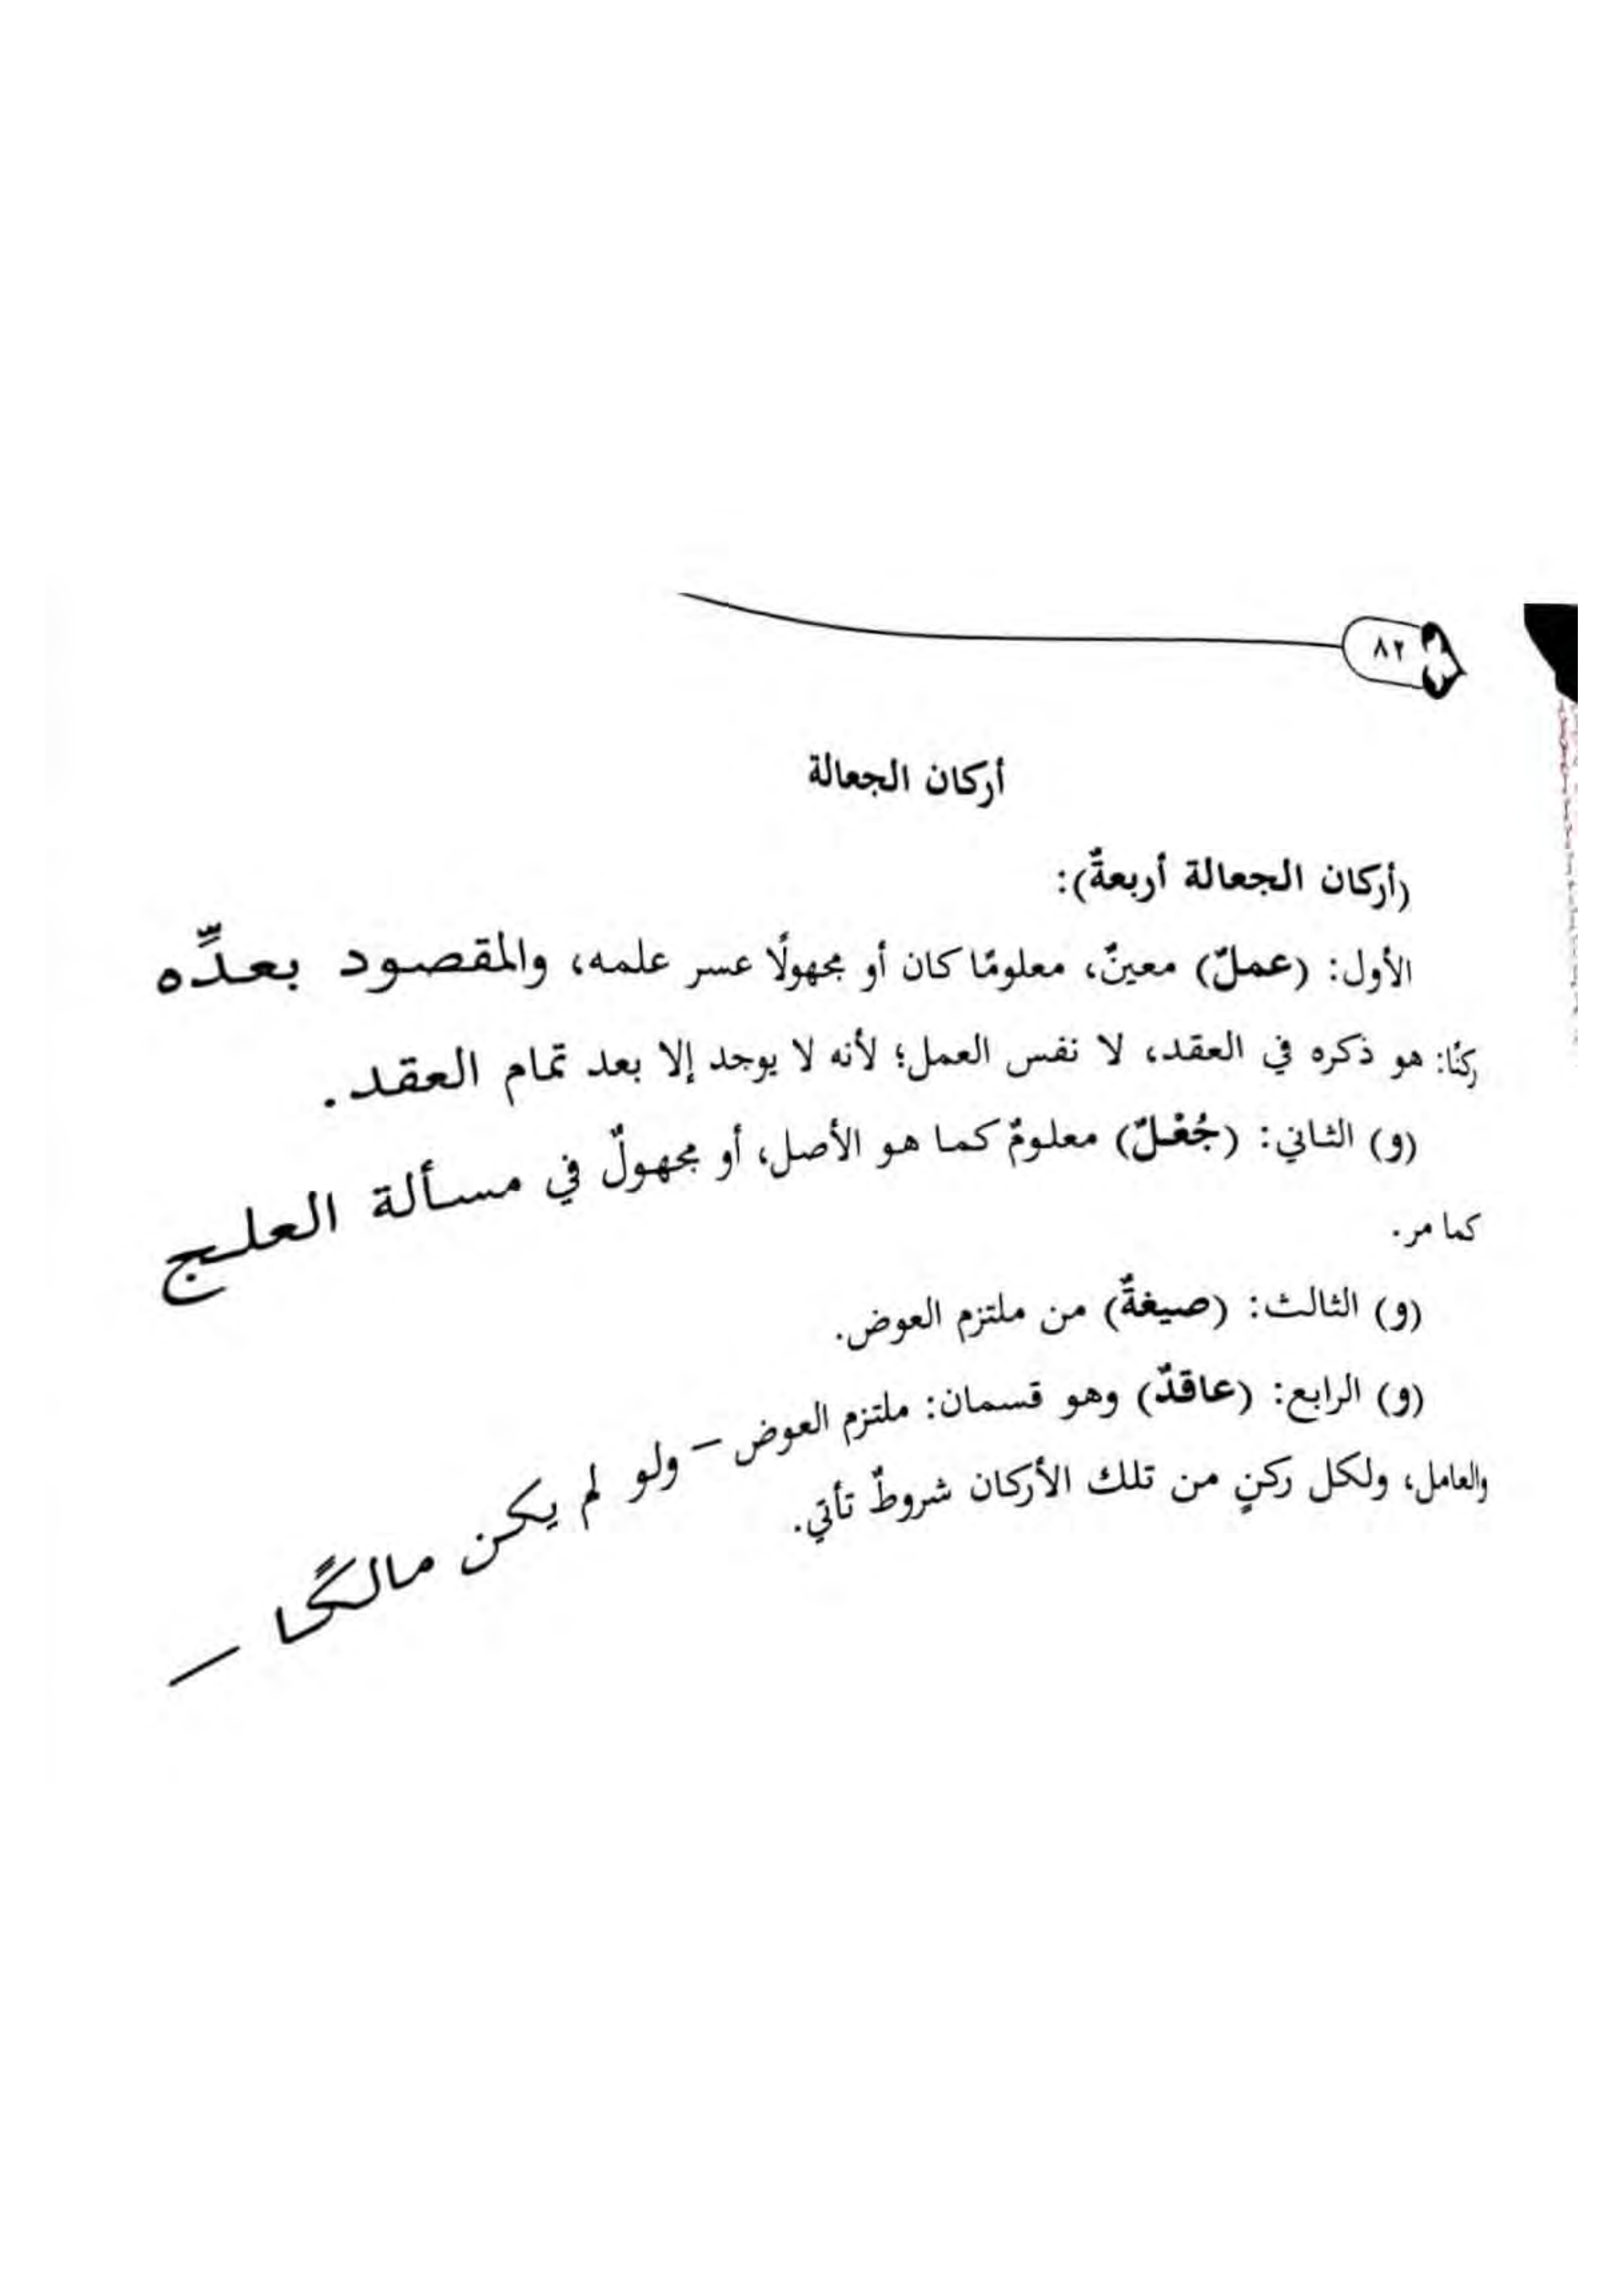 ٨٢
أركان الجعالة
(أركان الجعالة أربعةٌ):
الأول: (عملٌ) معينٌ، معلومًا كان أو مجهولًا عسر علمه، والمقصود بعدِّه
ركنًا: هو ذكره في العقد، لا نفس العمل؛ لأنه لا يوجد إلا بعد تمام العقد.
(و) الثاني: (جُعْلٌ) معلومٌ كما هو الأصل، أو مجهولٌ في مسألة العلج
كما مر.
(و) الثالث: (صيغةٌ) من ملتزم العوض.
(و) الرابع: (عاقدٌ) وهو قسمان: ملتزم العوض – ولو لم يكن مالكًا –
والعامل، ولكل ركنٍ من تلك الأركان شروطٌ تأتي.